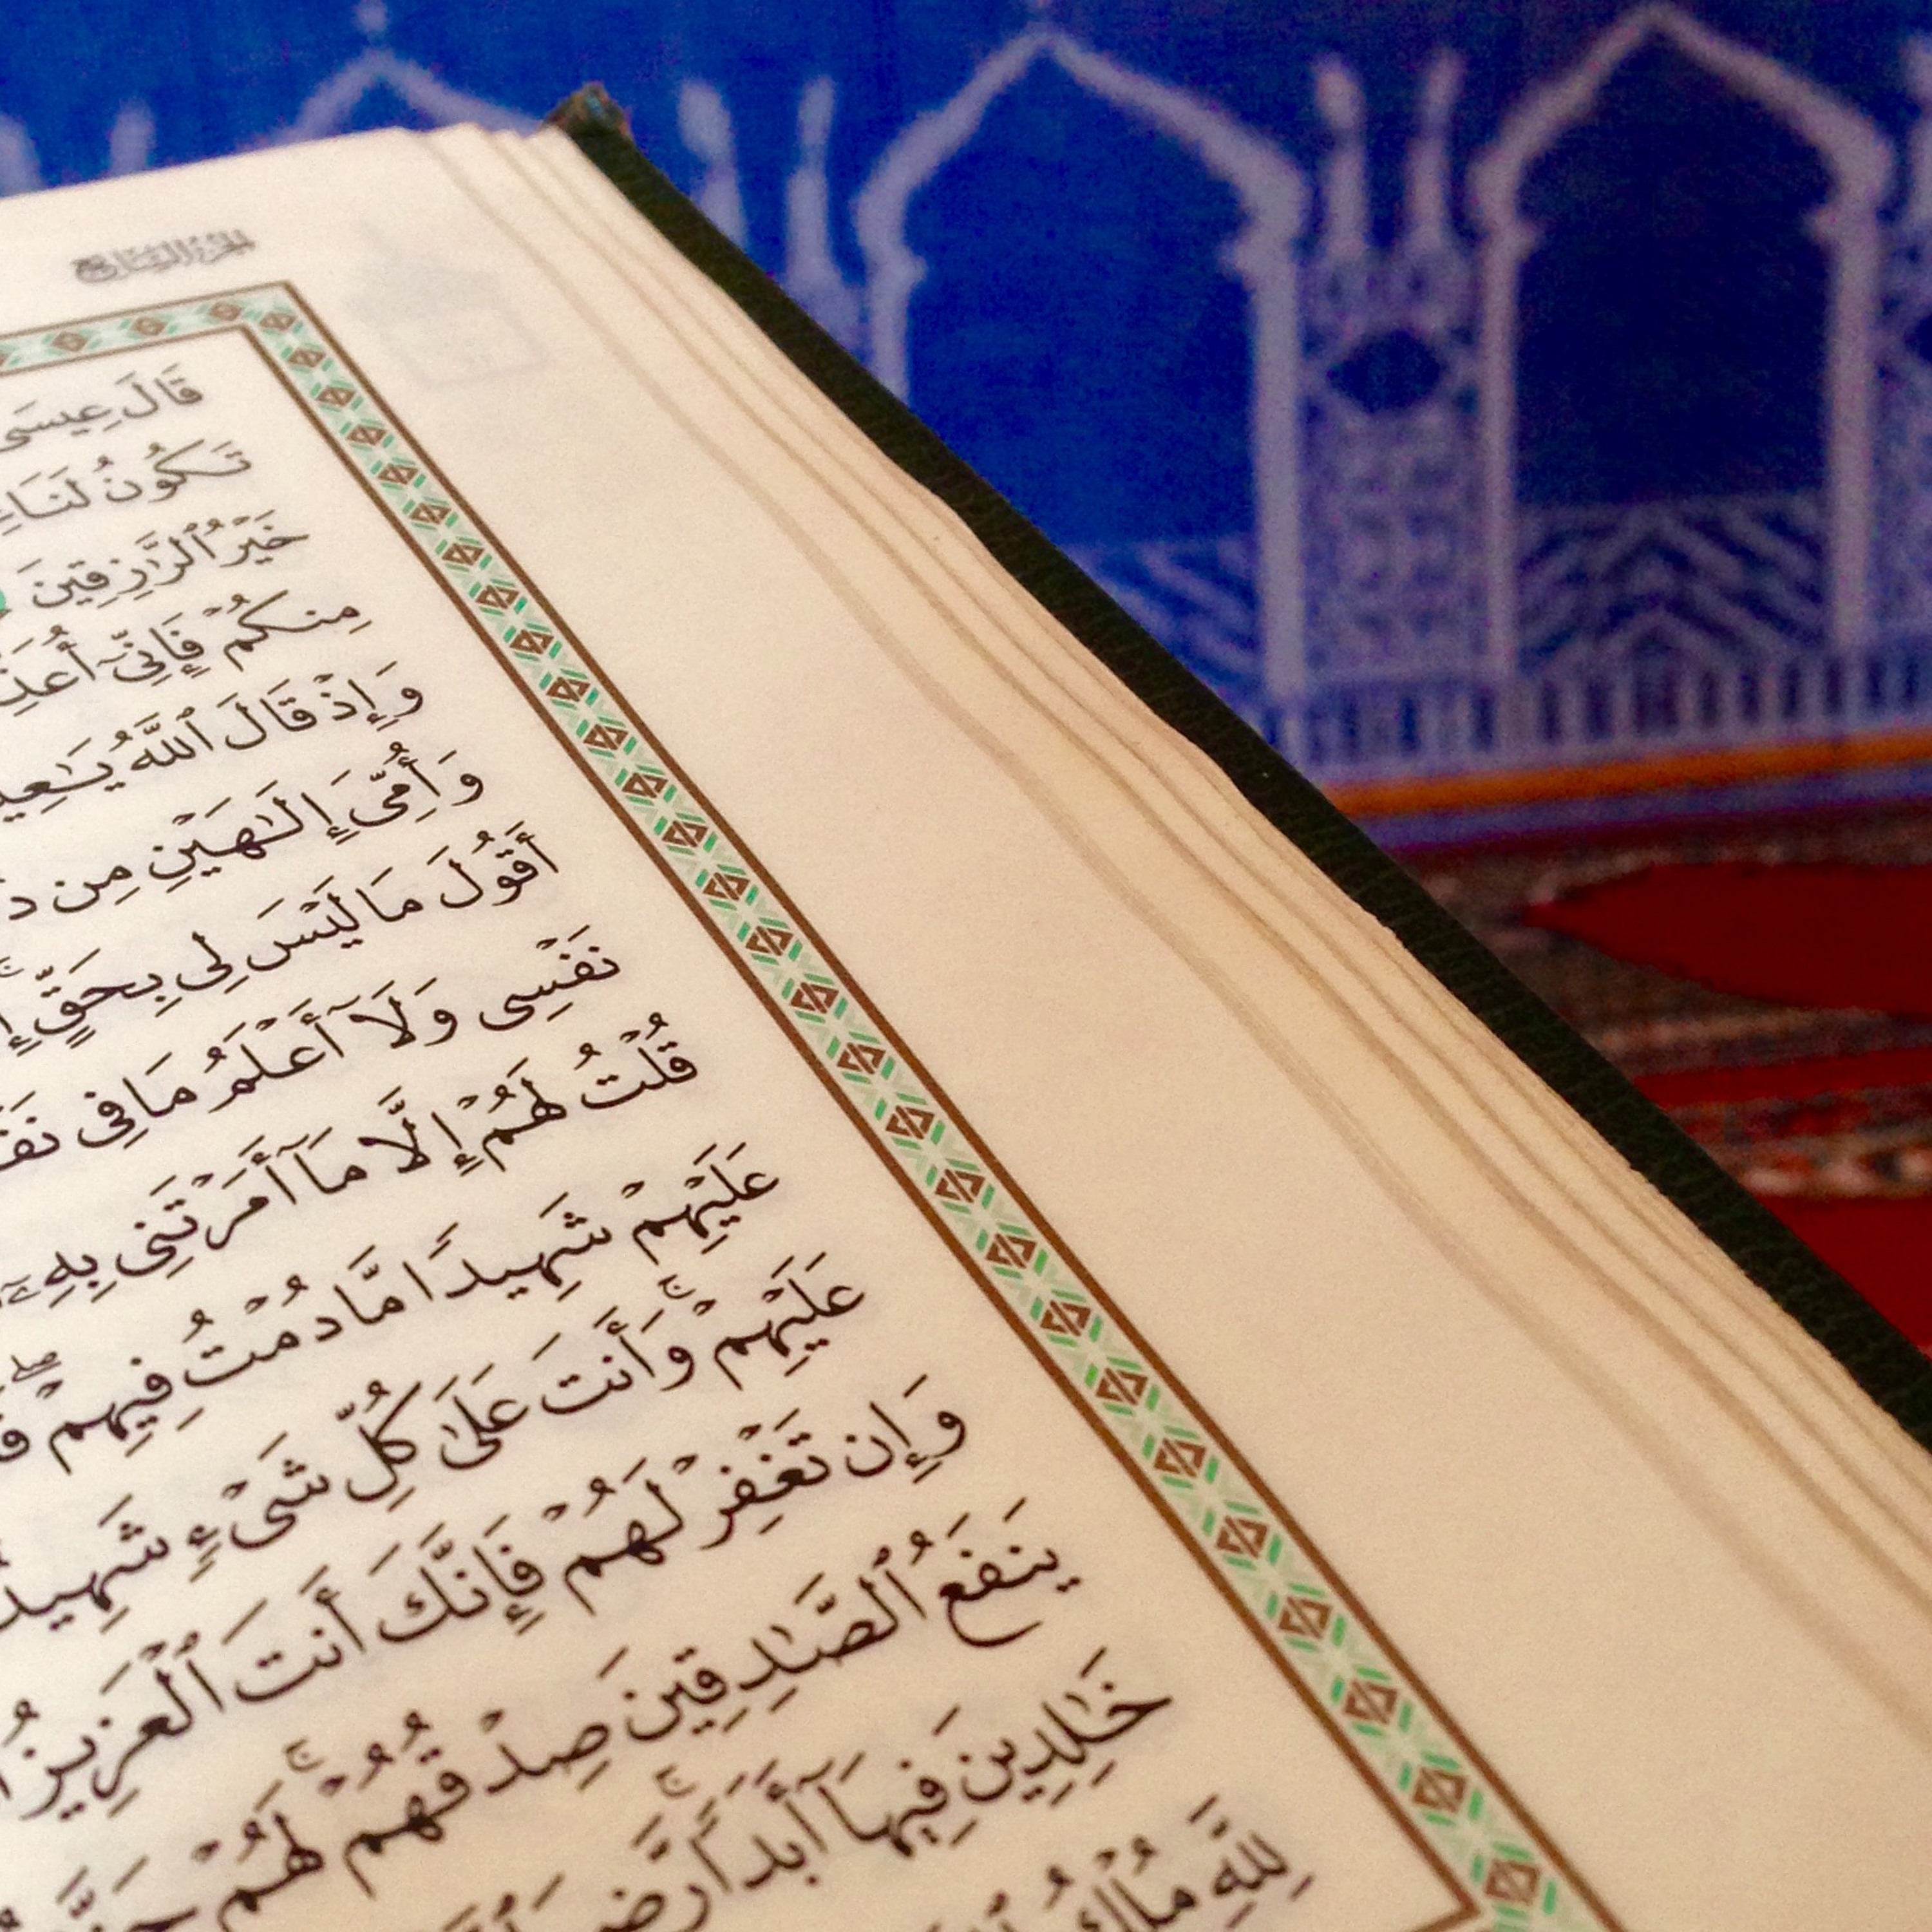 الجزء السابع
قَالَ عِيسَى
تَكُونُ لَنَا
خَيْرُ ٱلرَّٰزِقِينَ
مِنكُمْ فَإِنِّىٓ
وَإِذْ قَالَ ٱللَّهُ
وَأُمِّىَ إِلَٰهَيْنِ مِن
أَقُولَ مَا لَيْسَ لِى بِحَقٍّ
نَفْسِى وَلَآ أَعْلَمُ مَا فِى
قُلْتُ لَهُمْ إِلَّا مَآ أَمَرْتَنِى بِهِۦٓ
عَلَيْهِمْ شَهِيدًا مَّا دُمْتُ فِيهِمْ ۖ
عَلَيْهِمْ ۚ وَأَنتَ عَلَىٰ كُلِّ شَىْءٍ شَهِيدٌ
وَإِن تَغْفِرْ لَهُمْ فَإِنَّكَ أَنتَ ٱلْعَزِيزُ
يَنفَعُ ٱلصَّٰدِقِينَ صِدْقُهُمْ ۚ لَهُمْ
خَٰلِدِينَ فِيهَآ أَبَدًا ۚ
لِلَّهِ مُلْكُ